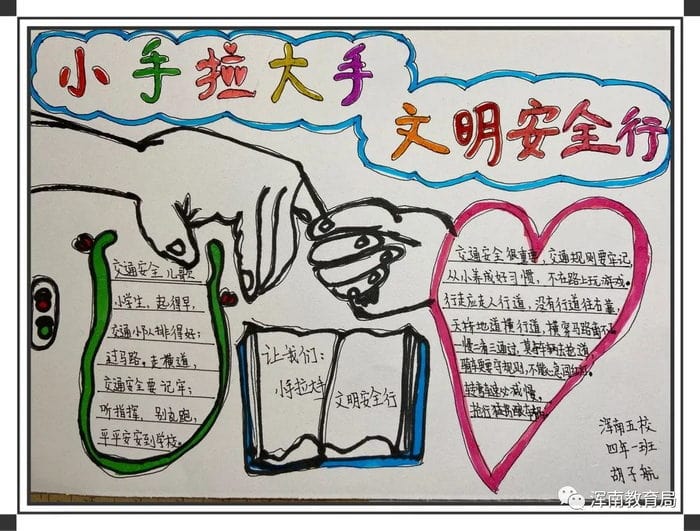 小手拉大手
文明安全行
交通安全儿歌
小学生,起得早,
交通小队排得好;
过马路,走横道,
交通安全要记牢;
听指挥,别乱跑,
平平安安到学校。
让我们:
小手拉大手
文明安全行
交通安全很重要,交通规则要牢记
从小养成好习惯,不在路上玩游戏。
行走应走人行道,没有行道往右靠,
天桥地道横行道,横穿马路
一慢二看三通过,
骑车要守规则,不能
转弯 减慢,
浑南五校
四年一班
胡子航
浑南教育局